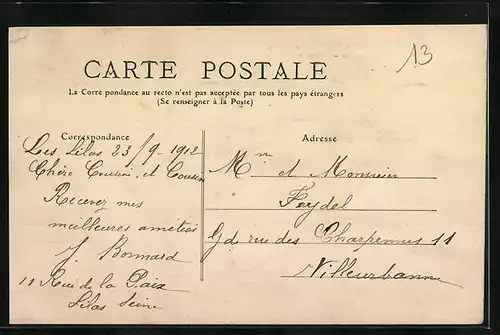 13
CARTE POSTALE
La Corre pondance au recto n'est pas acceptée par tous les pays étrangers
(Se renseigner à la Poste)
Correspondance
Les Lilas 23/9-1912
Chère Cousine et Cousin
Recevez mes
meilleures amitiés
J. Bonnard
11 Rue de la Paix
Lilas Seine
Adresse
Mme et Monsieur
Feydel
Gd rue des Charpennes 11
Villeurbanne